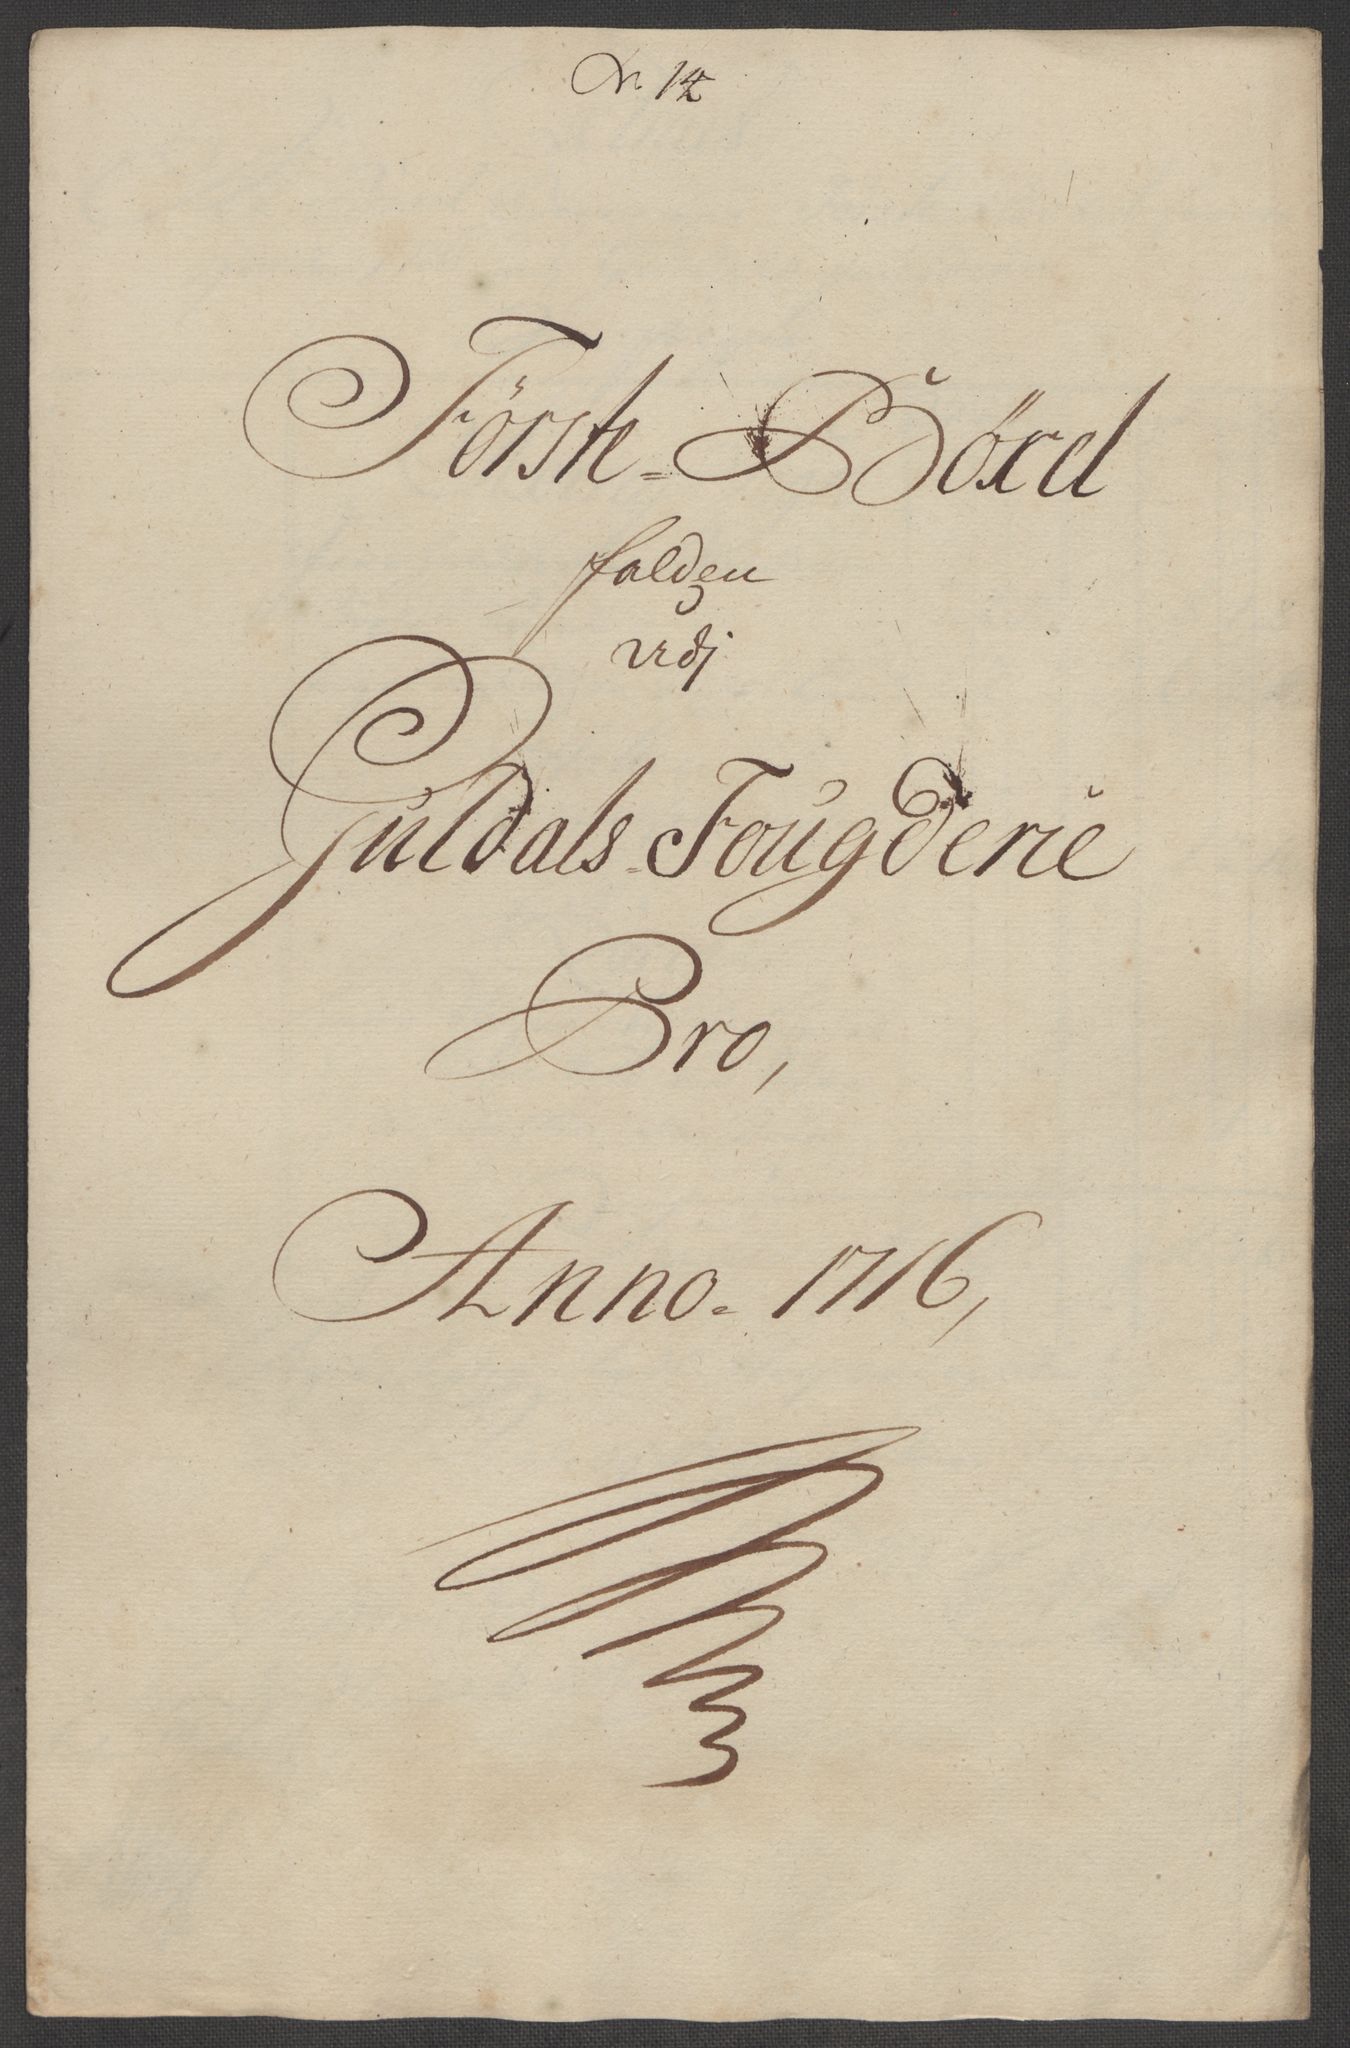 N. 14
Förste=Böxel
falden
udj
Guldals=Fougderie
Pro,
Anno=1716,